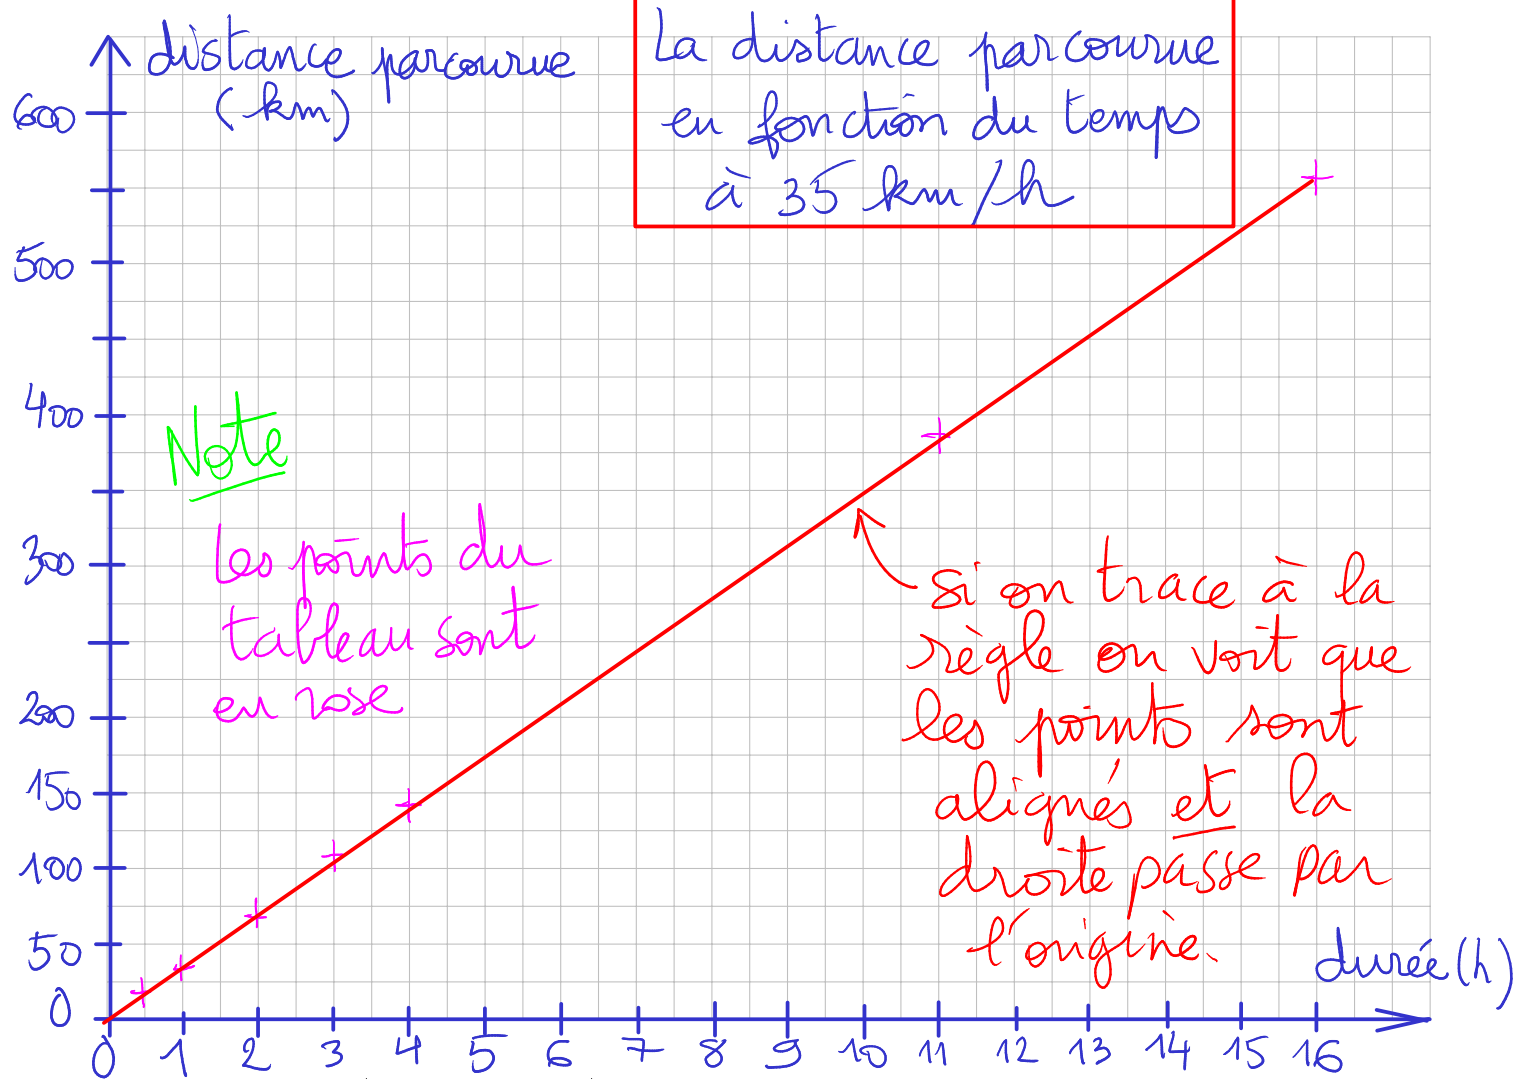 distance parcourue
(km)
La distance parcourue
en fonction du temps
à 35 km/h
600
500
400
300
200
150
100
50
0
Note
Les points du
tableau sont
en rose
si on trace à la
règle on voit que
les points sont
alignés et la
droite passe par
l'origine.
durée (h)
0 1 2 3 4 5 6 7 8 9 10 11 12 13 14 15 16